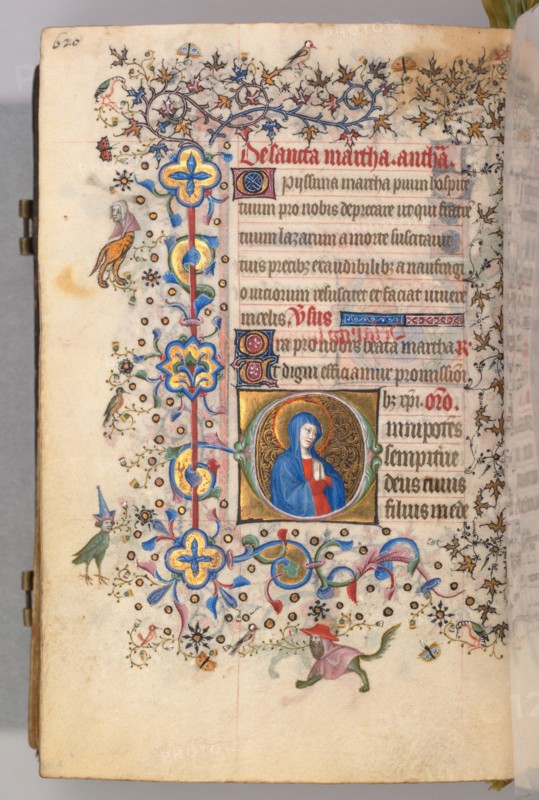 620
De sancta martha. anthã.
O Piissima martha pium hospite
tuum pro nobis deprecare ut qui fratrē
tuum lazarum a morte suscitauit
tuis precibȝ exaudibilibȝ a naufragi
o uiciorum resuscitet et faciat uiuere
in celis. Ꝟsus
Ora pro nobis beata martha R
Ut digni efficiamur promission
bȝ xpī. oro.
O mnipotēs
sempitne
deus cuius
filius in ede